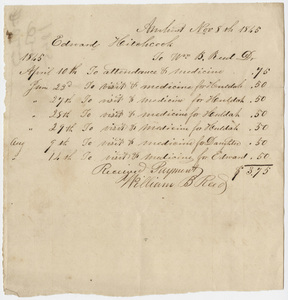 Amherst Nov 8th 1845
Edward Hitchcock
1845 To Wm B. Reed Dr.
April 10th To attendance & medicine .75
June 22d To visit & medicine for Huldah .50
" 27th To visit & medicine for Huldah .50
" 28th To visit & medicine for Huldah .50
" 29th To visit & medicine for Huldah .50
Aug 9th To visit & medicine for .50
" 14th To visit & medicine for Edward .50
Received Payment $3.75
William B Reed